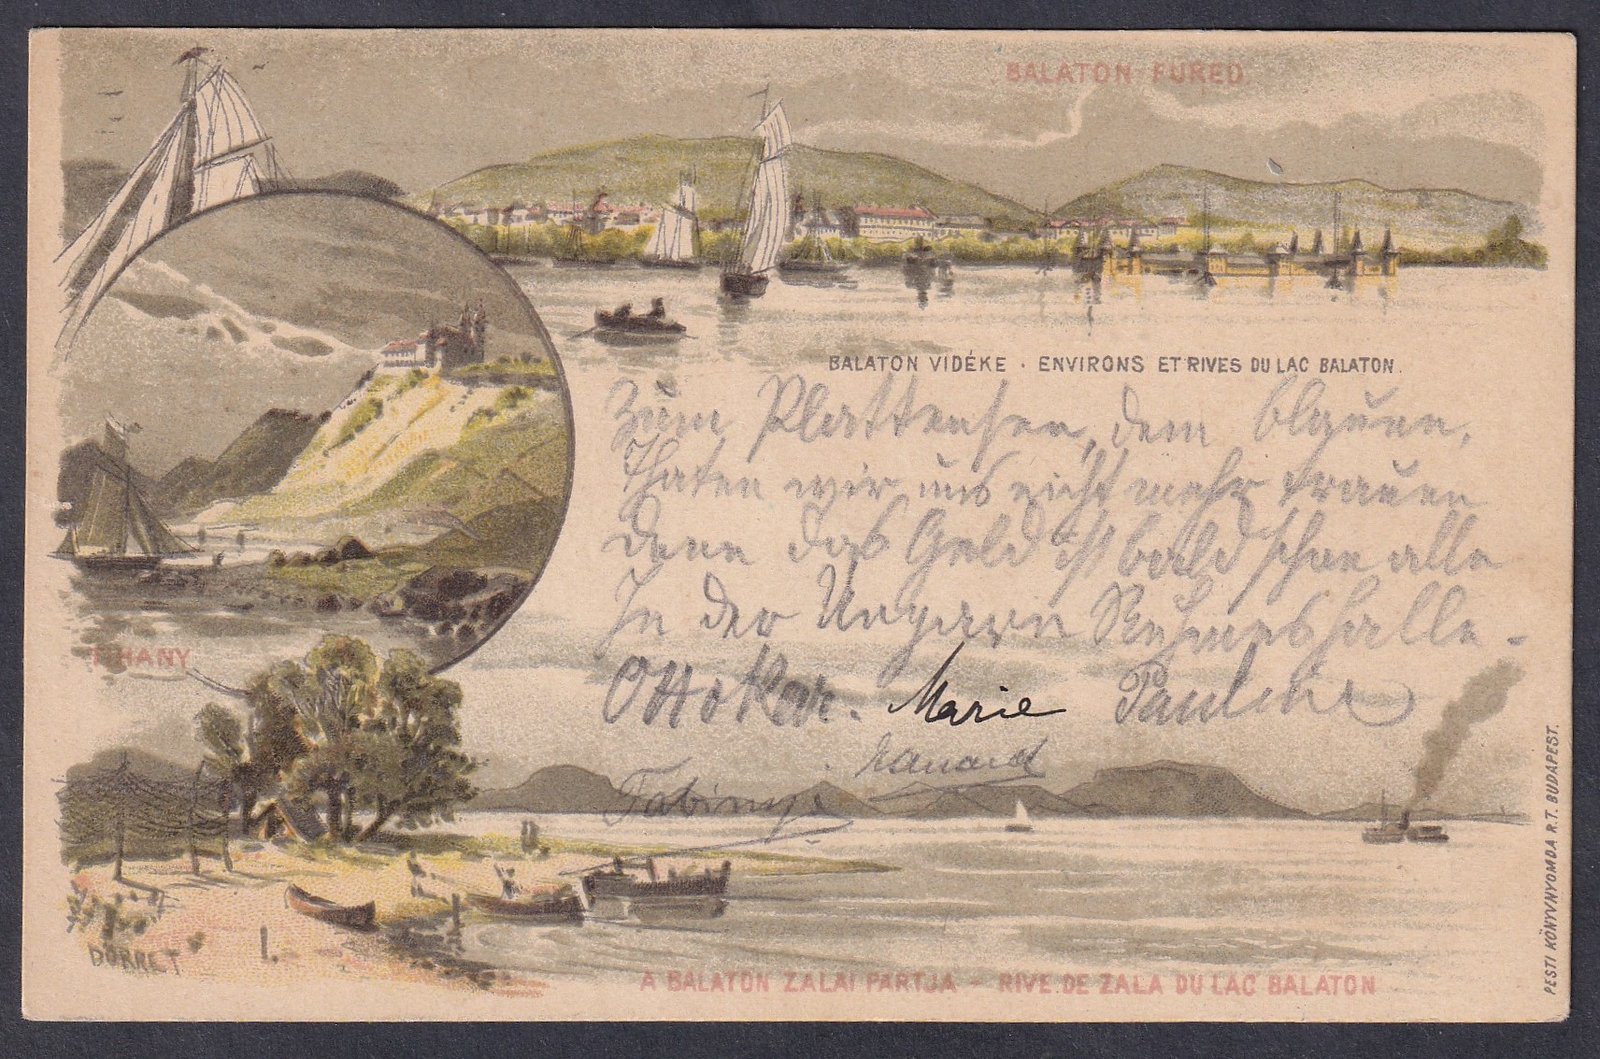 BALATON-FÜRED
BALATON VIDÉKE · ENVIRONS ET RIVES DU LAC BALATON.
Zum Plattensee, dem blauen,
Thaten wir uns nicht mehr trauen
denn das Geld ist bald schon alle
In der Ungarn Ruhmeshalle.
Ottokar. Marie Pauline
Fabinyi
TIHANY
DÖRRET
1.
A BALATON ZALAI PARTJA - RIVE DE ZALA DU LAC BALATON
PESTI KÖNYVNYOMDA R.T. BUDAPEST.